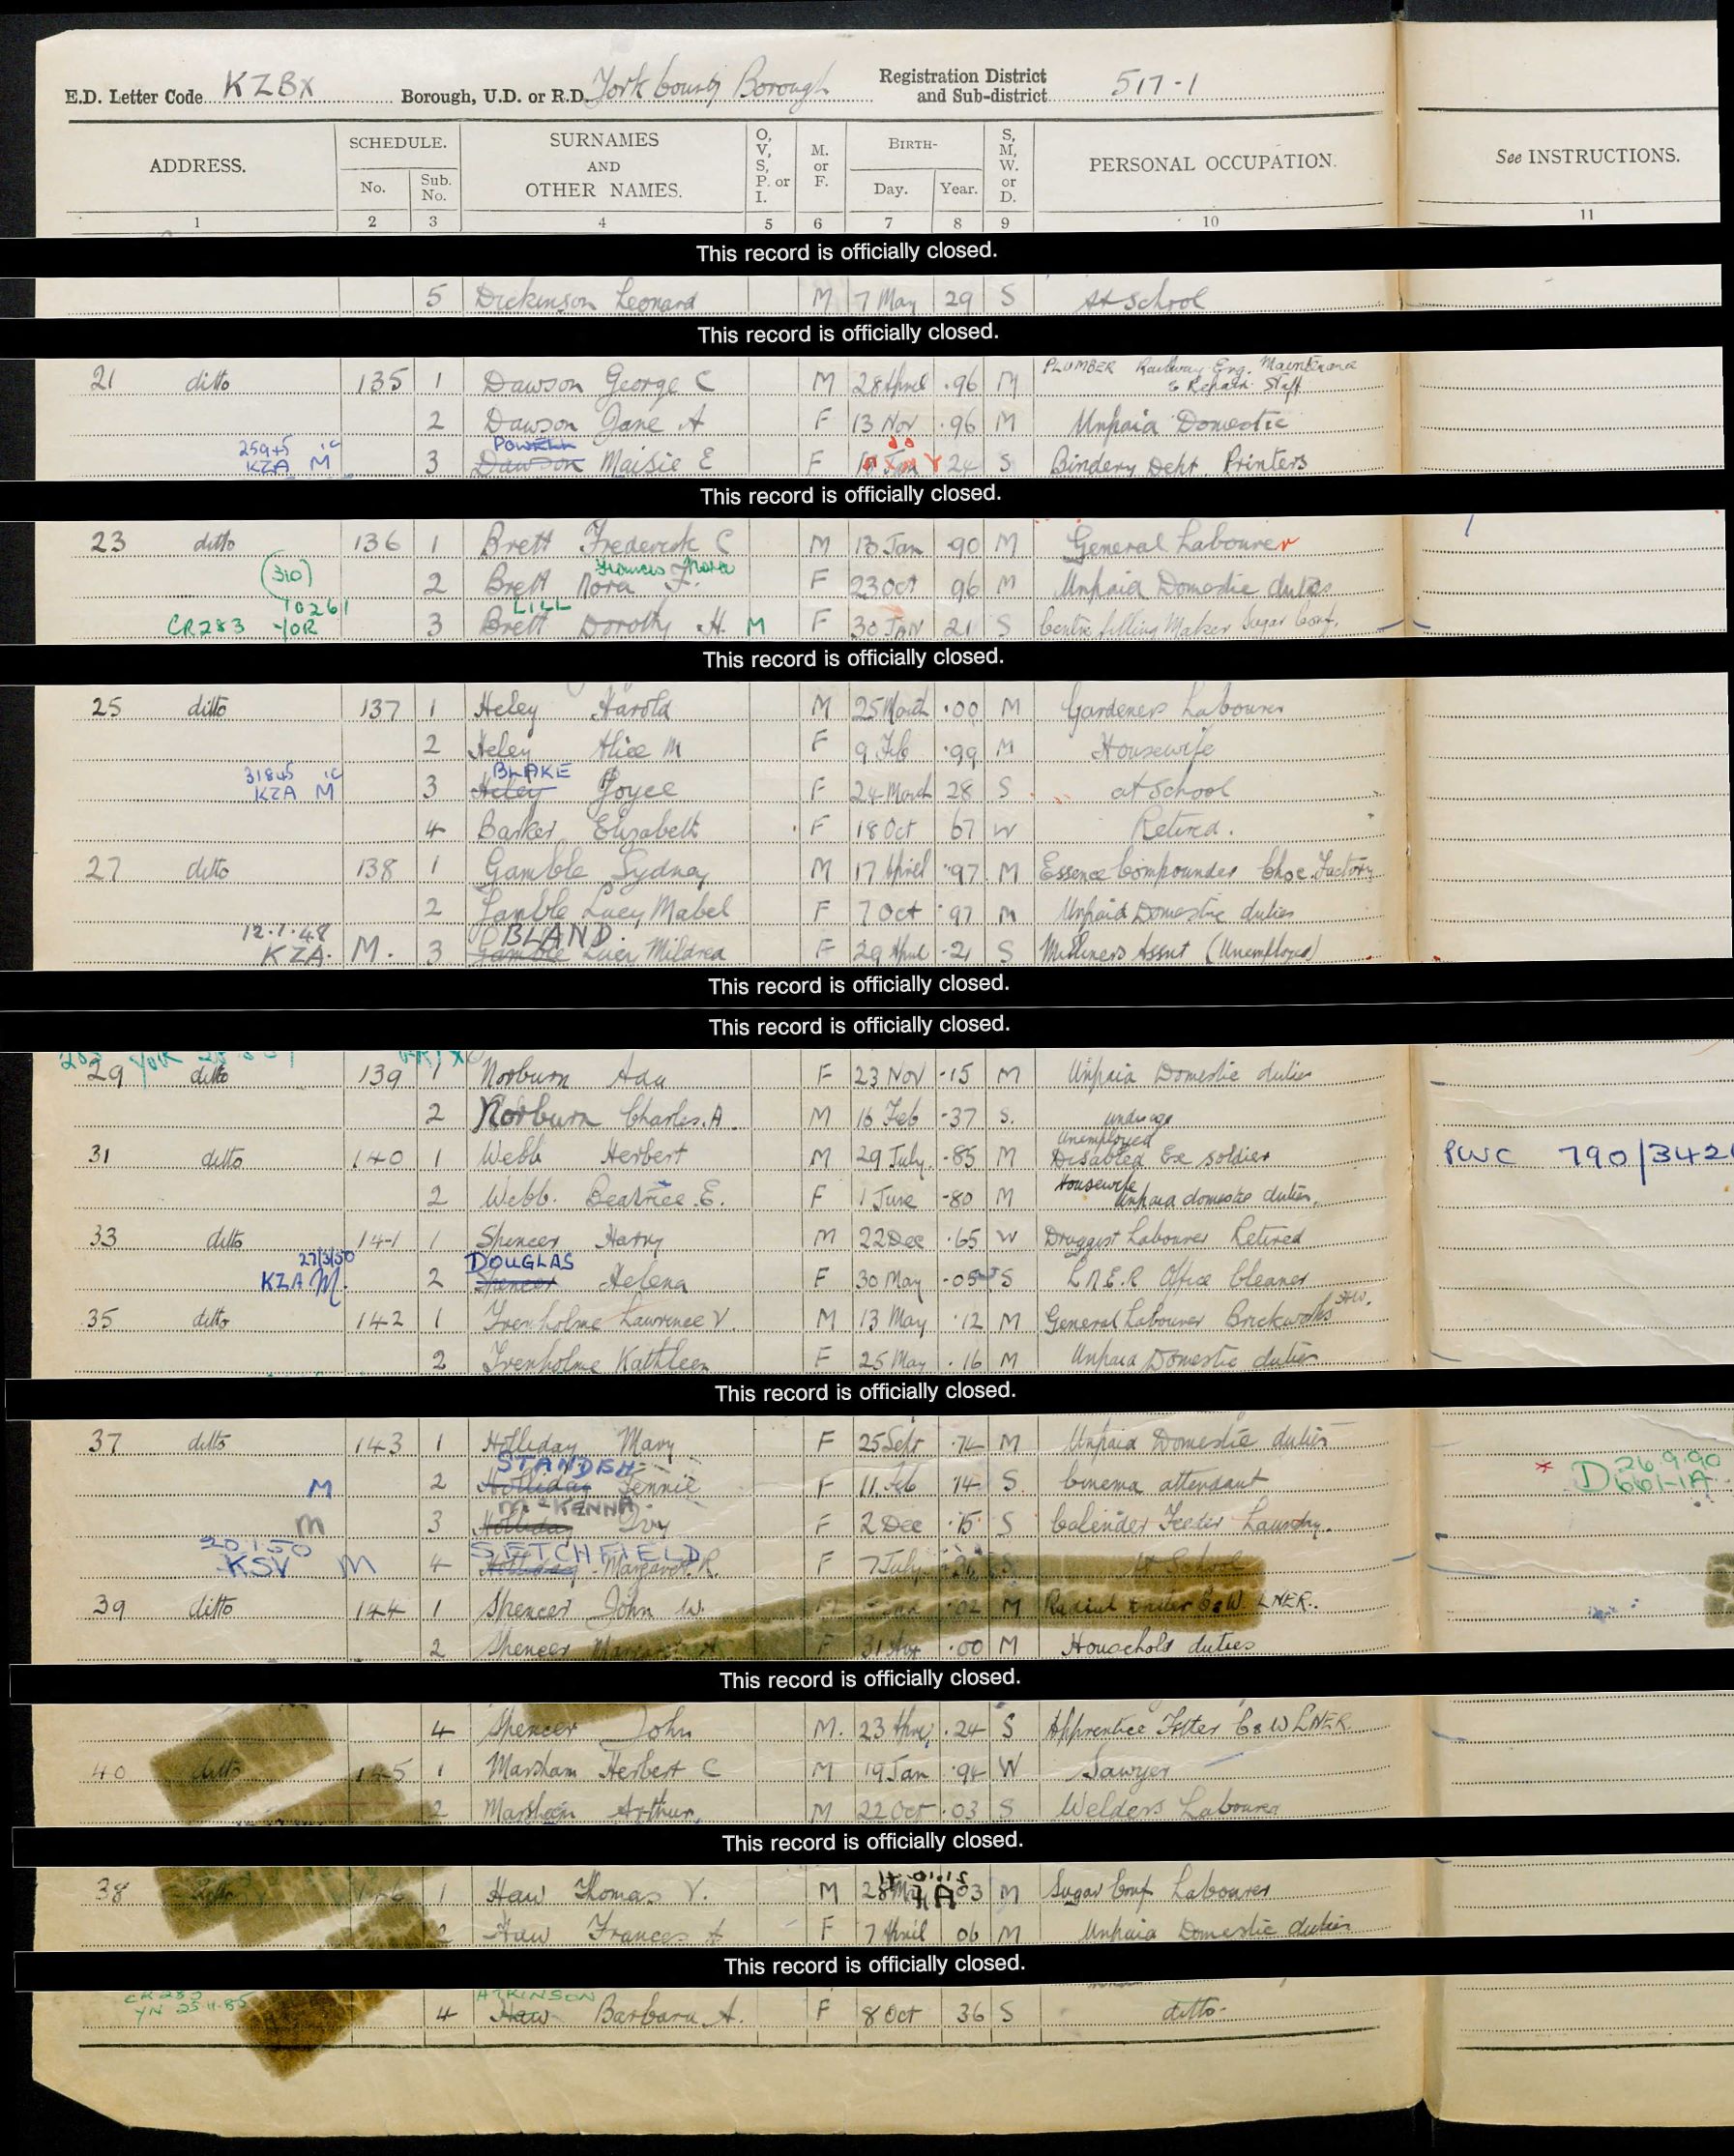 E.D. Letter Code KZBX Borough, U.D. or R.D. York County Borough Registration District and Sub-district 517-1
ADDRESS. SCHEDULE. No. Sub. No. SURNAMES AND OTHER NAMES. O, V, S, P. or I. M. or F. BIRTH- Day. Year. S, M, W. or D. PERSONAL OCCUPATION. See INSTRUCTIONS.
1 2 3 4 5 6 7 8 9 10 11
This record is officially closed.
5 Dickinson Leonard M 7 May 29 S At School
This record is officially closed.
PLUMBER Railway Eng. Maintenance
21 ditto 135 1 Dawson George C M 28 April .96 M & Repair Staff
2 Dawson Jane A F 13 Nov .96 M Unpaid Domestic
25945 ic POWELL
KZA M 3 Dawson Maisie E F Jan 24 S Bindery Dept Printers
This record is officially closed.
23 ditto 136 1 Brett Frederick C M 13 Jan 90 M General Labourer
310 Frances Nora
2 Brett Nora F. F 23 Oct 96 M Unpaid Domestic duties
10261 LILL
CR283 YOR 3 Brett Dorothy H. M F 30 JAN 21 S Centre filling Maker Sugar Conf.
This record is officially closed.
25 ditto 137 1 Heley Harold M 25 March .00 M Gardeners Labourer
2 Heley Alice M F 9 Feb .99 M Housewife
31845 ic BLAKE
KZA M 3 Heley Joyce F 24 March 28 S at School
4 Barker Elizabeth F 18 Oct 67 W Retired.
27 ditto 138 1 Gamble Sydney M 17 April .97 M Essence Compounder Choc. Factory
2 Gamble Lucy Mabel F 7 Oct .97 M Unpaid Domestic duties
12.1.48 BLAND.
KZA. M. 3 Gamble Lucy Mildred F 29 April -21 S Milliners Assnt (Unemployed)
This record is officially closed.
This record is officially closed.
29 ditto 139 1 Norburn Ada F 23 Nov -15 M Unpaid Domestic duties
2 Norburn Charles. A. M 16 Feb -37 S. under age
Unemployed
31 ditto 140 1 Webb Herbert M 29 July -85 M Disabled Ex soldier PWC 790/342
Housewife
2 Webb. Beatrice. E. F 1 June -80 M Unpaid domestic duties.
33 ditto 141 1 Spencer Harry M 22 Dec .65 W Druggist Labourer Retired
27/3/50 DOUGLAS
KZA M. 2 Spencer Helena F 30 May -05 S L.N.E.R Office Cleaner
35 ditto 142 1 Trenholme Lawrence V. M 13 May .12 M General Labourer Brickworks
2 Trenholme Kathleen F 25 May .16 M Unpaid Domestic duties
This record is officially closed.
37 ditto 143 1 Holliday Mary F 25 Sept .74 M Unpaid Domestic duties
STANDISH 26.9.90
M 2 Holliday Jennie F 11. Feb 14 S. Cinema attendant * D661-1A
Mc-KENNA
m 3 Holliday Ivy F 2 Dec .15 S Calender Feeder Laundry.
20.1.50 SETCHFIELD
KSV M 4 Holliday Margaret. R. F 7 July 26 S At School
39 ditto 144 1 Spencer John W. .02 M C&W. LNER.
2 Spencer Margaret A F 31 .00 M Household duties
This record is officially closed.
4 Spencer John M. 23 April .24 S Apprentice Fitter C&W LNER
40 ditto 145 1 Marsham Herbert C M 19 Jan .94 W Sawyer
2 Marsham Arthur. M 22 Oct .03 S Welders Labourer
This record is officially closed.
38 ditto 146 1 Haw Thomas V. M 28 May 03 M Sugar Conf Labourer
2 Haw Frances A F 7 April 06 M Unpaid Domestic duties
This record is officially closed.
CR283 ATKINSON
YN 25-11-85 4 Haw Barbara A. F 8 Oct 36 S ditto